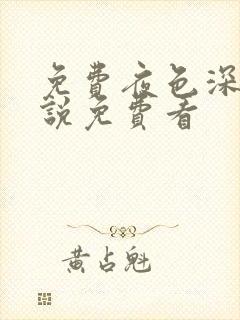 免費夜色深
說免費看
黃占魁